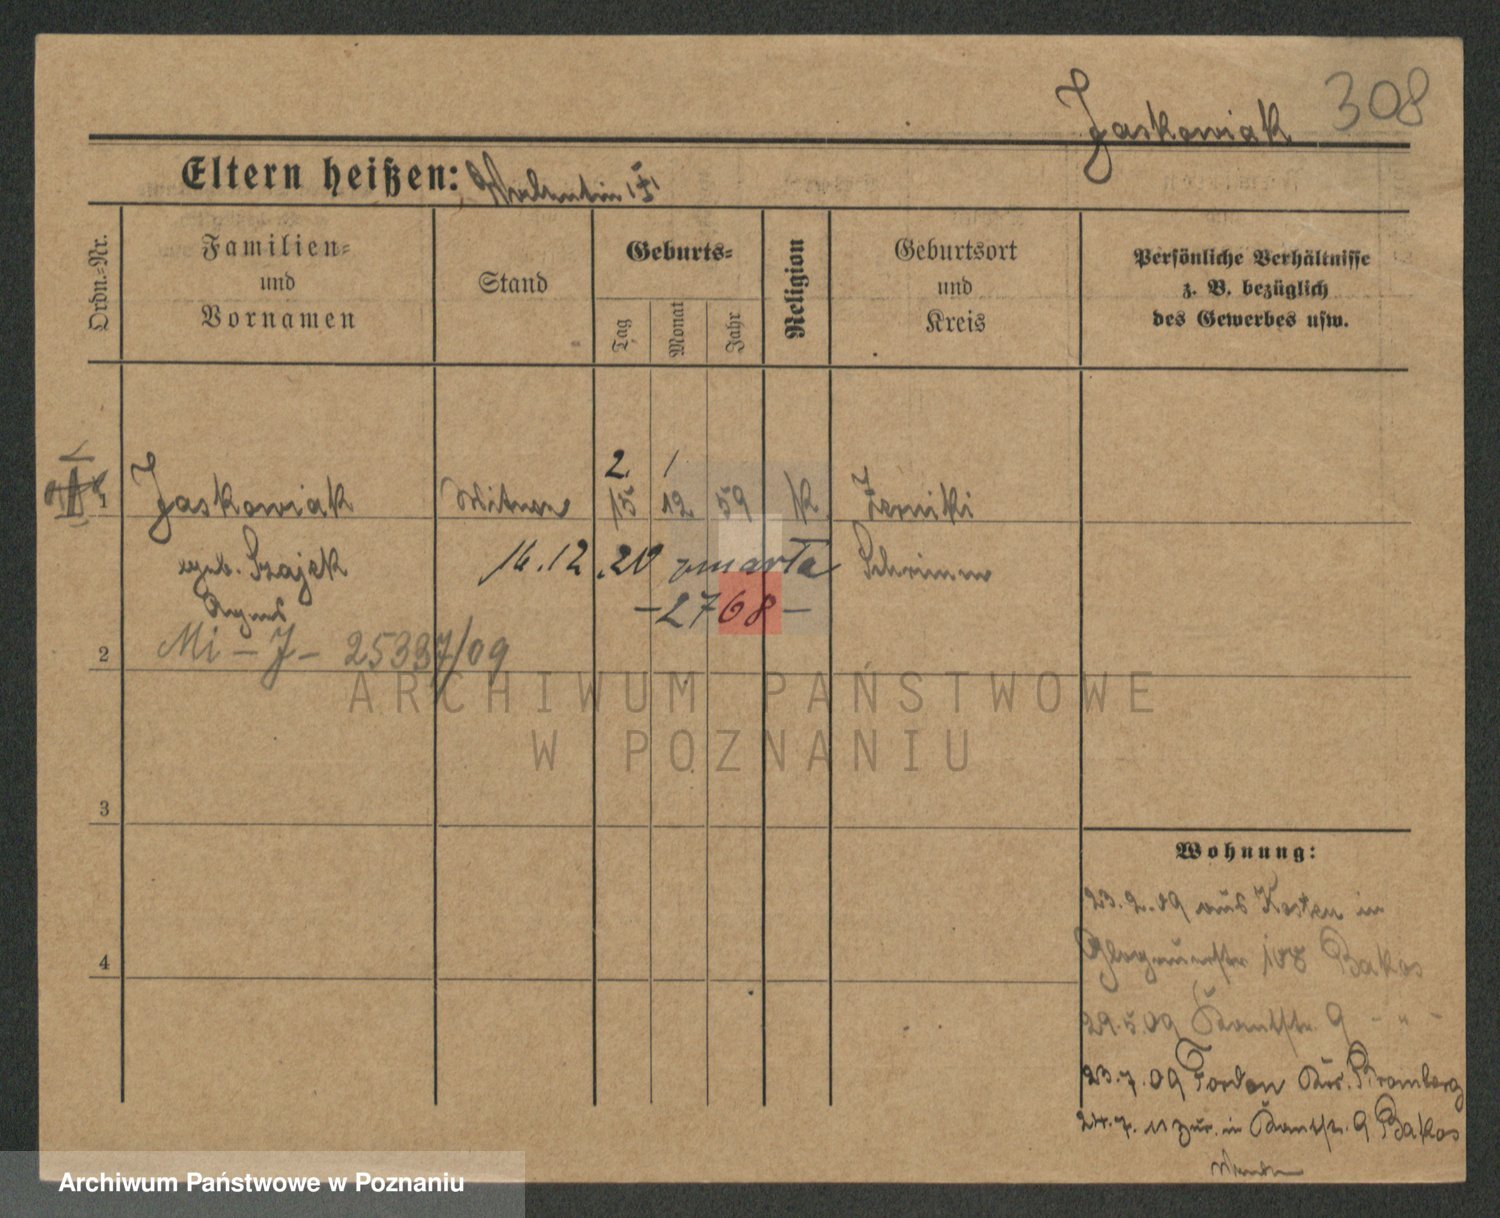 Jaskowiak 308
Eltern heißen: Valentin
Ordn.=Nr.
Familien=
und
Vornamen
Stand
Geburts=
Tag
Monat
Jahr
Religion
Geburtsort
und
Kreis
Persönliche Verhältnisse
z. B. bezüglich
des Gewerbes usw.
2. 1
1 Jaskowiak Witwe 15 12 59 K. Zerniki
geb. Szajek 16.12.20 zmarła Schrimm
Agnes —2768—
Mi – J – 25337/09
2
3
4
Wohnung:
23.2.09 aus Kosten in
Glogauerstr 108 Bakos
29.5.09 Kantstr. 9 – " –
23.7.09 Fordon Krs. Bromberg
24.7.11 zur. in Kantstr. 9 Bakos
Wenden
ARCHIWUM PAŃSTWOWE
W POZNANIU
Archiwum Państwowe w Poznaniu